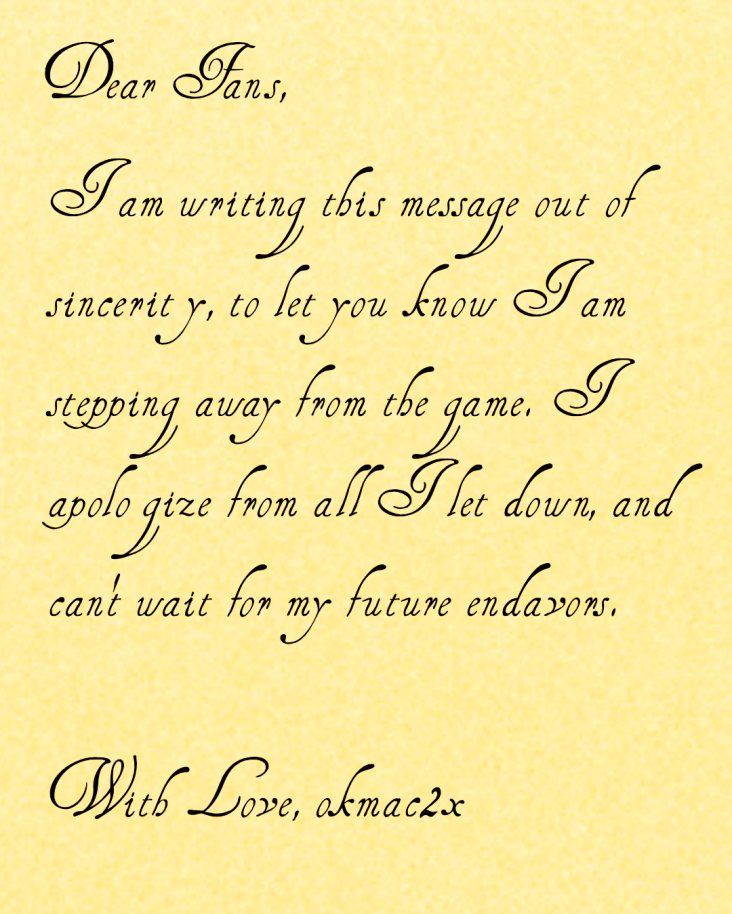 Dear Fans,
I am writing this message out of
sincerity, to let you know I am
stepping away from the game. I
apologize from all I let down, and
can't wait for my future endavors.
With Love, okmac2x